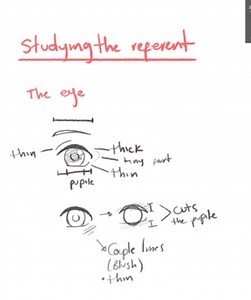 Studying the referent
The eye
thin
thick
tiny part
thin
pupile
I
I
cuts
the pupile
Couple lines
(Blush)
• thin